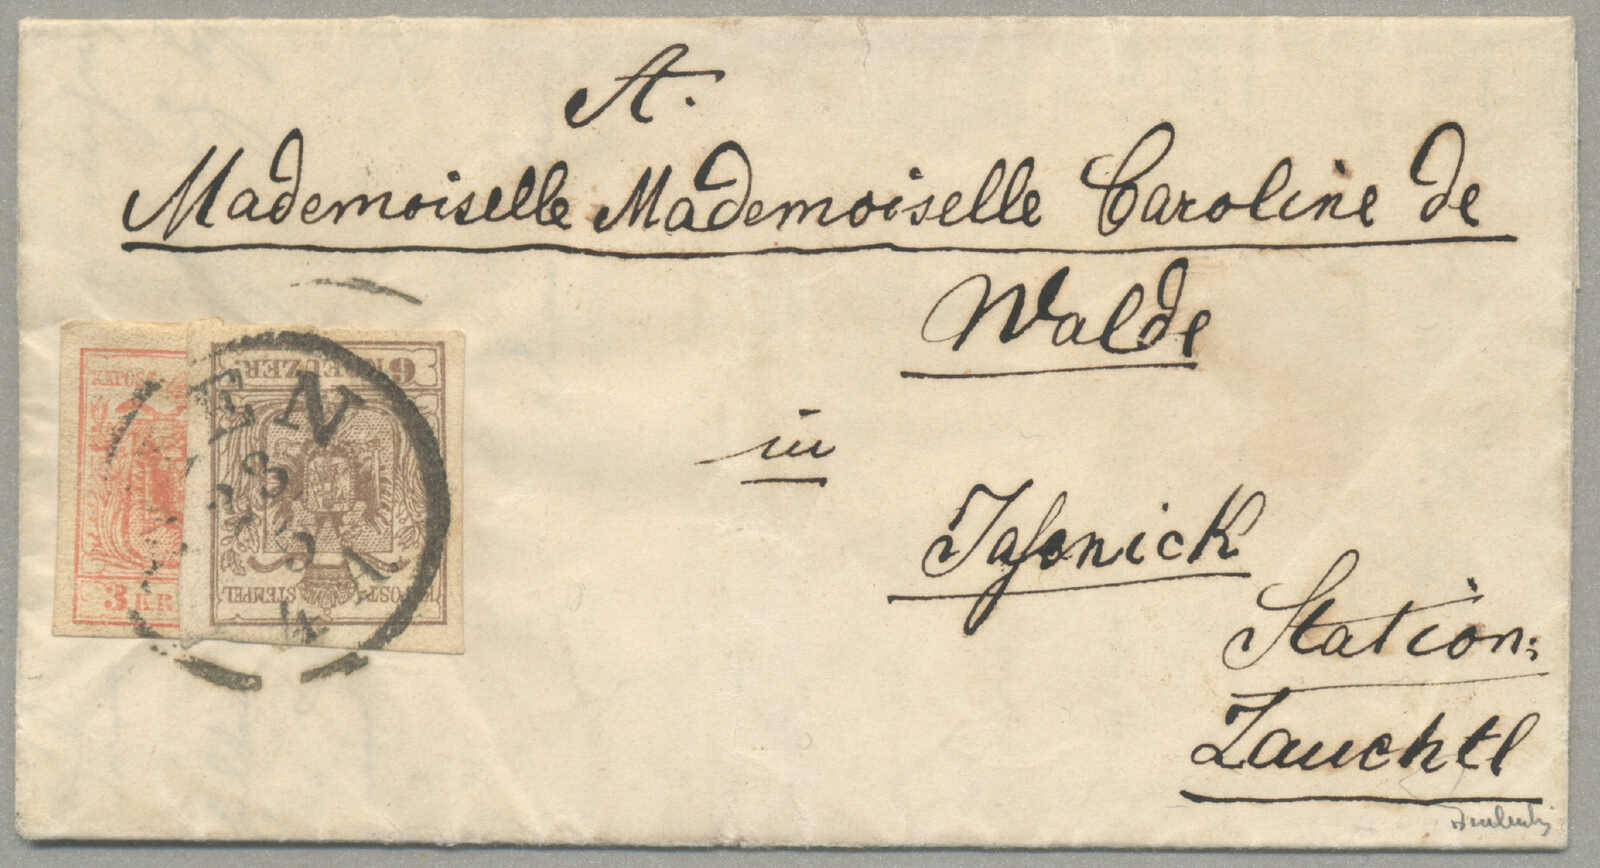 A.
Mademoiselle Mademoiselle Caroline de
Walde
in
Jaſsnick
Station:
Zauchtl
6 KREUZER
EN
23
4 A
3 KR
POST-
STEMPEL